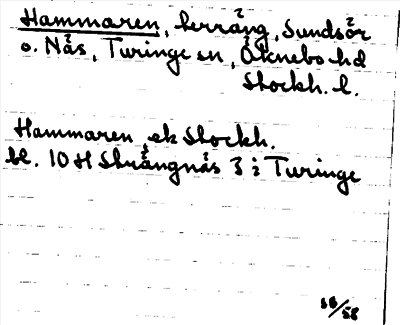 Hammaren, herrång, Sundsör
o. Näs, Turinge sn, Öknebo hd
Stockh. l.
Hammaren ek Stockh.
bl. 10 H Strängnäs 3 i Turinge
/58